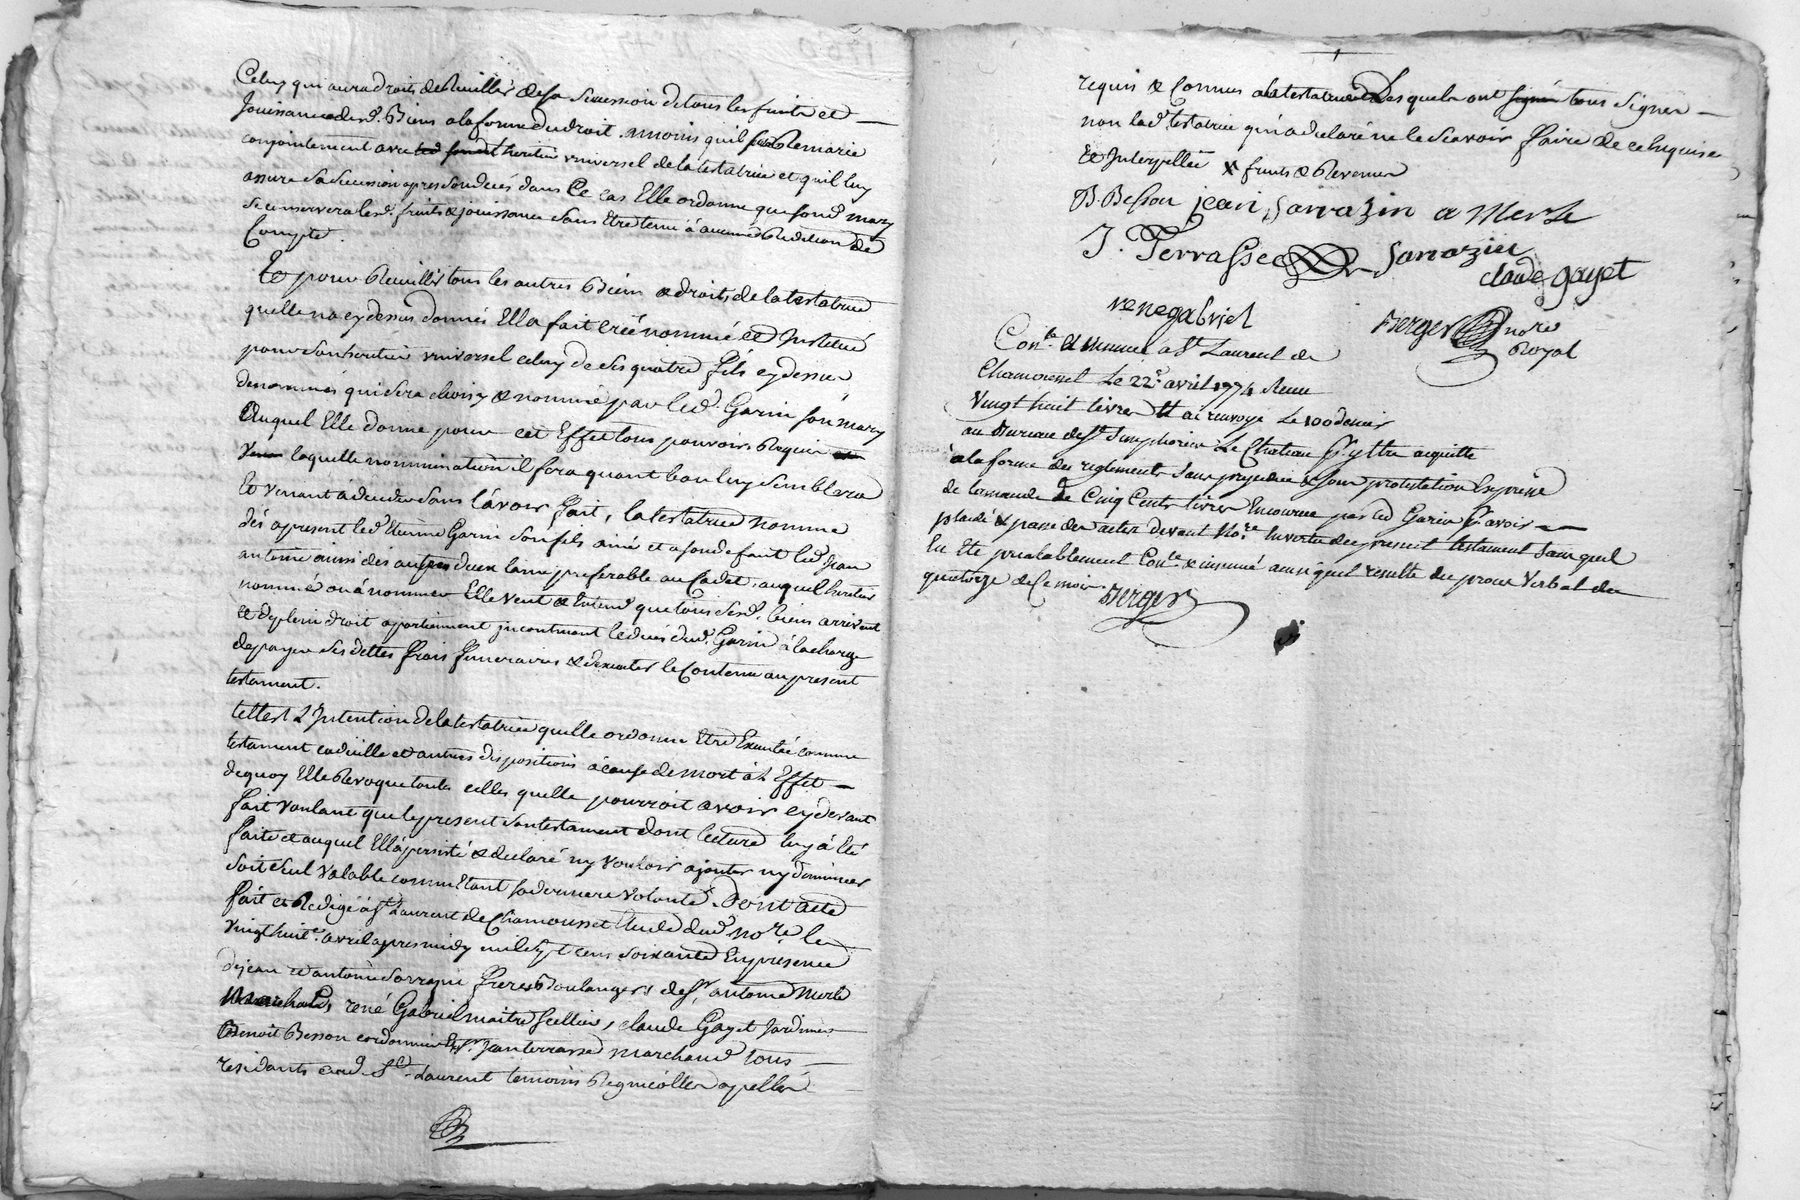 Celuy qui aura droits de Reuillir de sa succession de tous les fruits et
Jouissance desd. Biens a la forme du droit. amoins quil se Remarie
conjointement avec heritier universel de la testatrice et quil luy
assure sa succession apres son deces dans Ce cas Elle ordonne que sond mary
se conservera lesd. fruits & jouissance sans Etre tenu à aucune Redition de
Compte.
Et pour Reuillir tous les autres Biens & droits de la testatrice
quelle na cy dessus donnés Ella fait créé nommé et Institué
pour son heritier universel celuy de ses quatre fils cy dessus
denommés qui sera choisy & nommé par led. Garin son mary
Auquel Elle donne pour cet Effet tous pouvoirs Requis
laquelle nommination il fera quant bon luy semblera
Et venant à deceder sans l'avoir fait, la testatrice nomme
dés apresent led. Garin son fils ainé et a son defaut led. Jean
antoine aussi dés au fils deux l'ainé preferable au Cadet, auquel heritier
nommé ou à nommer Elle veut & Entend que tous sesd. biens arrivent
& de plein droit apartiennent incontinent le deces dud. Garin à la charge
de payer ses dettes frais funeraires & dexecuter le Contenu au present
testament.
telle est L'Intention de la testatrice quelle ordonne Etre Executée comme
testament codicille et autres dispositions à cause de mort à L'Effet
de quoy Elle Revoque toutes celles quelle pourroit avoir cy devant
fait voulant que le present son testament dont lecture luy à été
faite et auquel Ell à persisté & declaré ny vouloir ajouter ny diminuer
soit seul valable comme Etant sa derniere volonté. Dont acte
fait et Redigé à St Laurent de Chamousset Etude dud. nore le
vingt huite. avril apres midy mil sept cens soixante En presence
de jean et antoine Sarrazin freres Boulangers de sr. antoine Merle
Marchand, rené Gabriel maitre sellier, claude Gayet Jardinier
Benoit Besson cordonnier Et sr. Jean terrasse marchand tous
residants aud. St. Laurent temoins Regnicolles apellés
requis & Connus a la testatrice Lesquels ont tous signer
non lad. testatrice qui a declaré ne le scavoir faire de ce Enquise
Et Interpellée x fruits & Revenus
B. Besson jean sarrazin a Merle
J. Terrasse Sarrazin
claude gayet
rene gabriel
Berger nore
Royal
Conle. et insinué a St Laurent de
Chamousset Le 22e avril 1774 Reçu
Vingt huit livres Et ai renvoyé Le 100 denier
au Bureau de St Simphorien Le Chateau Pr ytre aquitté
a la forme des reglements sans prejudice & sous protestation Expresse
de lamande de Cinq Cents livres Encourue par led Garin Pr avoir
plaidé & passé des actes devant Nore. En vertu du present testament sans quil
En Ete prealablement Conle. & insinué ainsi quil resulte du proces Verbal du
quatorze de Ce mois Berger